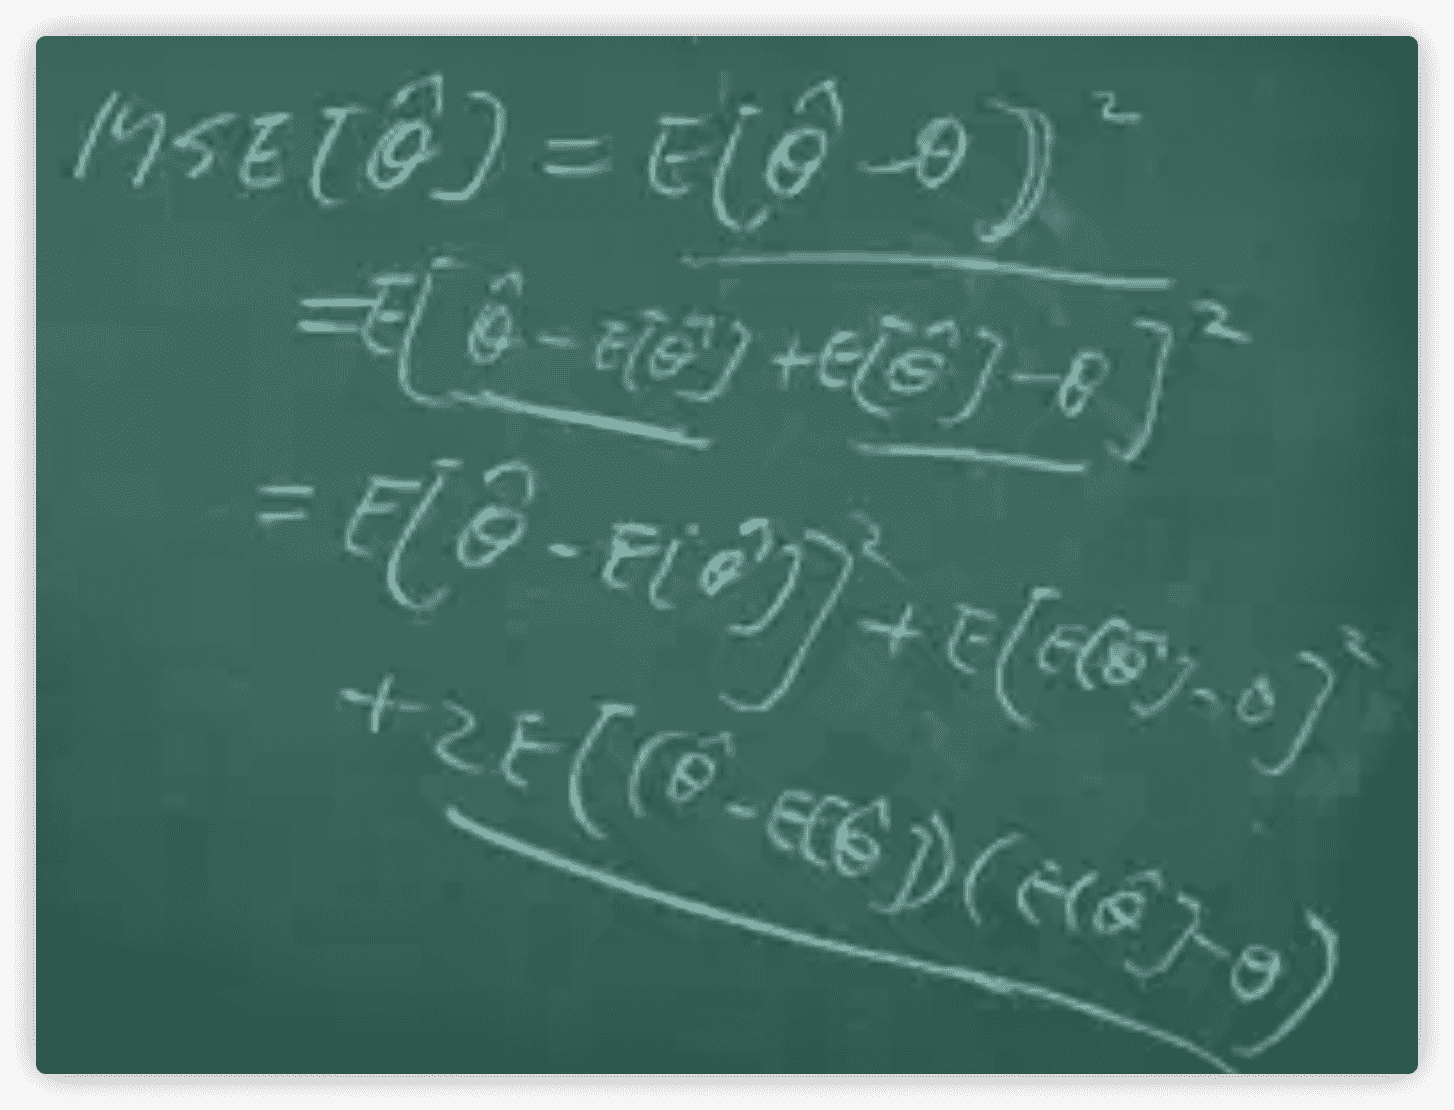 MSE[θ̂] = E[θ̂ - θ]²
= E[θ̂ - E[θ̂] + E[θ̂] - θ]²
= E[θ̂ - E[θ̂]]² + E[E[θ̂] - θ]²
+ 2E[(θ̂ - E[θ̂])(E[θ̂] - θ)